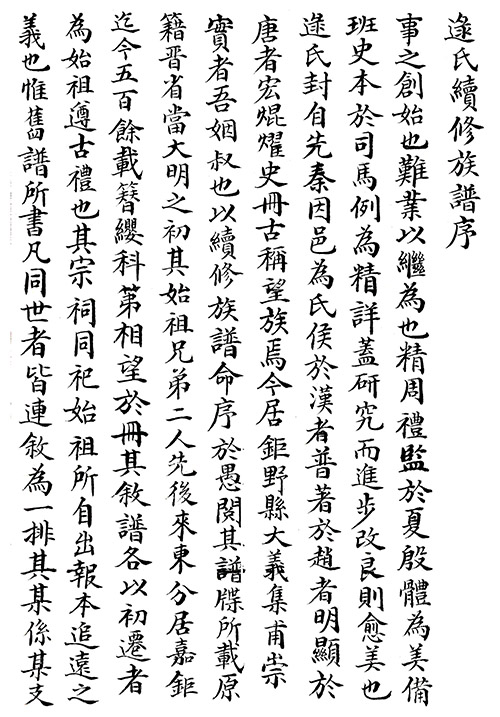 逯氏續修族譜序
事之創始也難業以繼為也精周禮監於夏殷體為美備
班史本於司馬例為精詳蓋研究而進步改良則愈美也
逯氏封自先秦因邑為氏侯於漢者普著於趙者明顯於
唐者宏焜耀史冊古稱望族焉今居鉅野縣大義集甫崇
實者吾姻叔也以續修族譜命序於愚閱其譜牒所載原
籍晉省當大明之初其始祖兄弟二人先後來東分居嘉鉅
迄今五百餘載簪纓科第相望於冊其敘譜各以初遷者
為始祖遵古禮也其宗祠同祀始祖所自出報本追遠之
義也惟舊譜所書凡同世者皆連敘為一排其某係某支